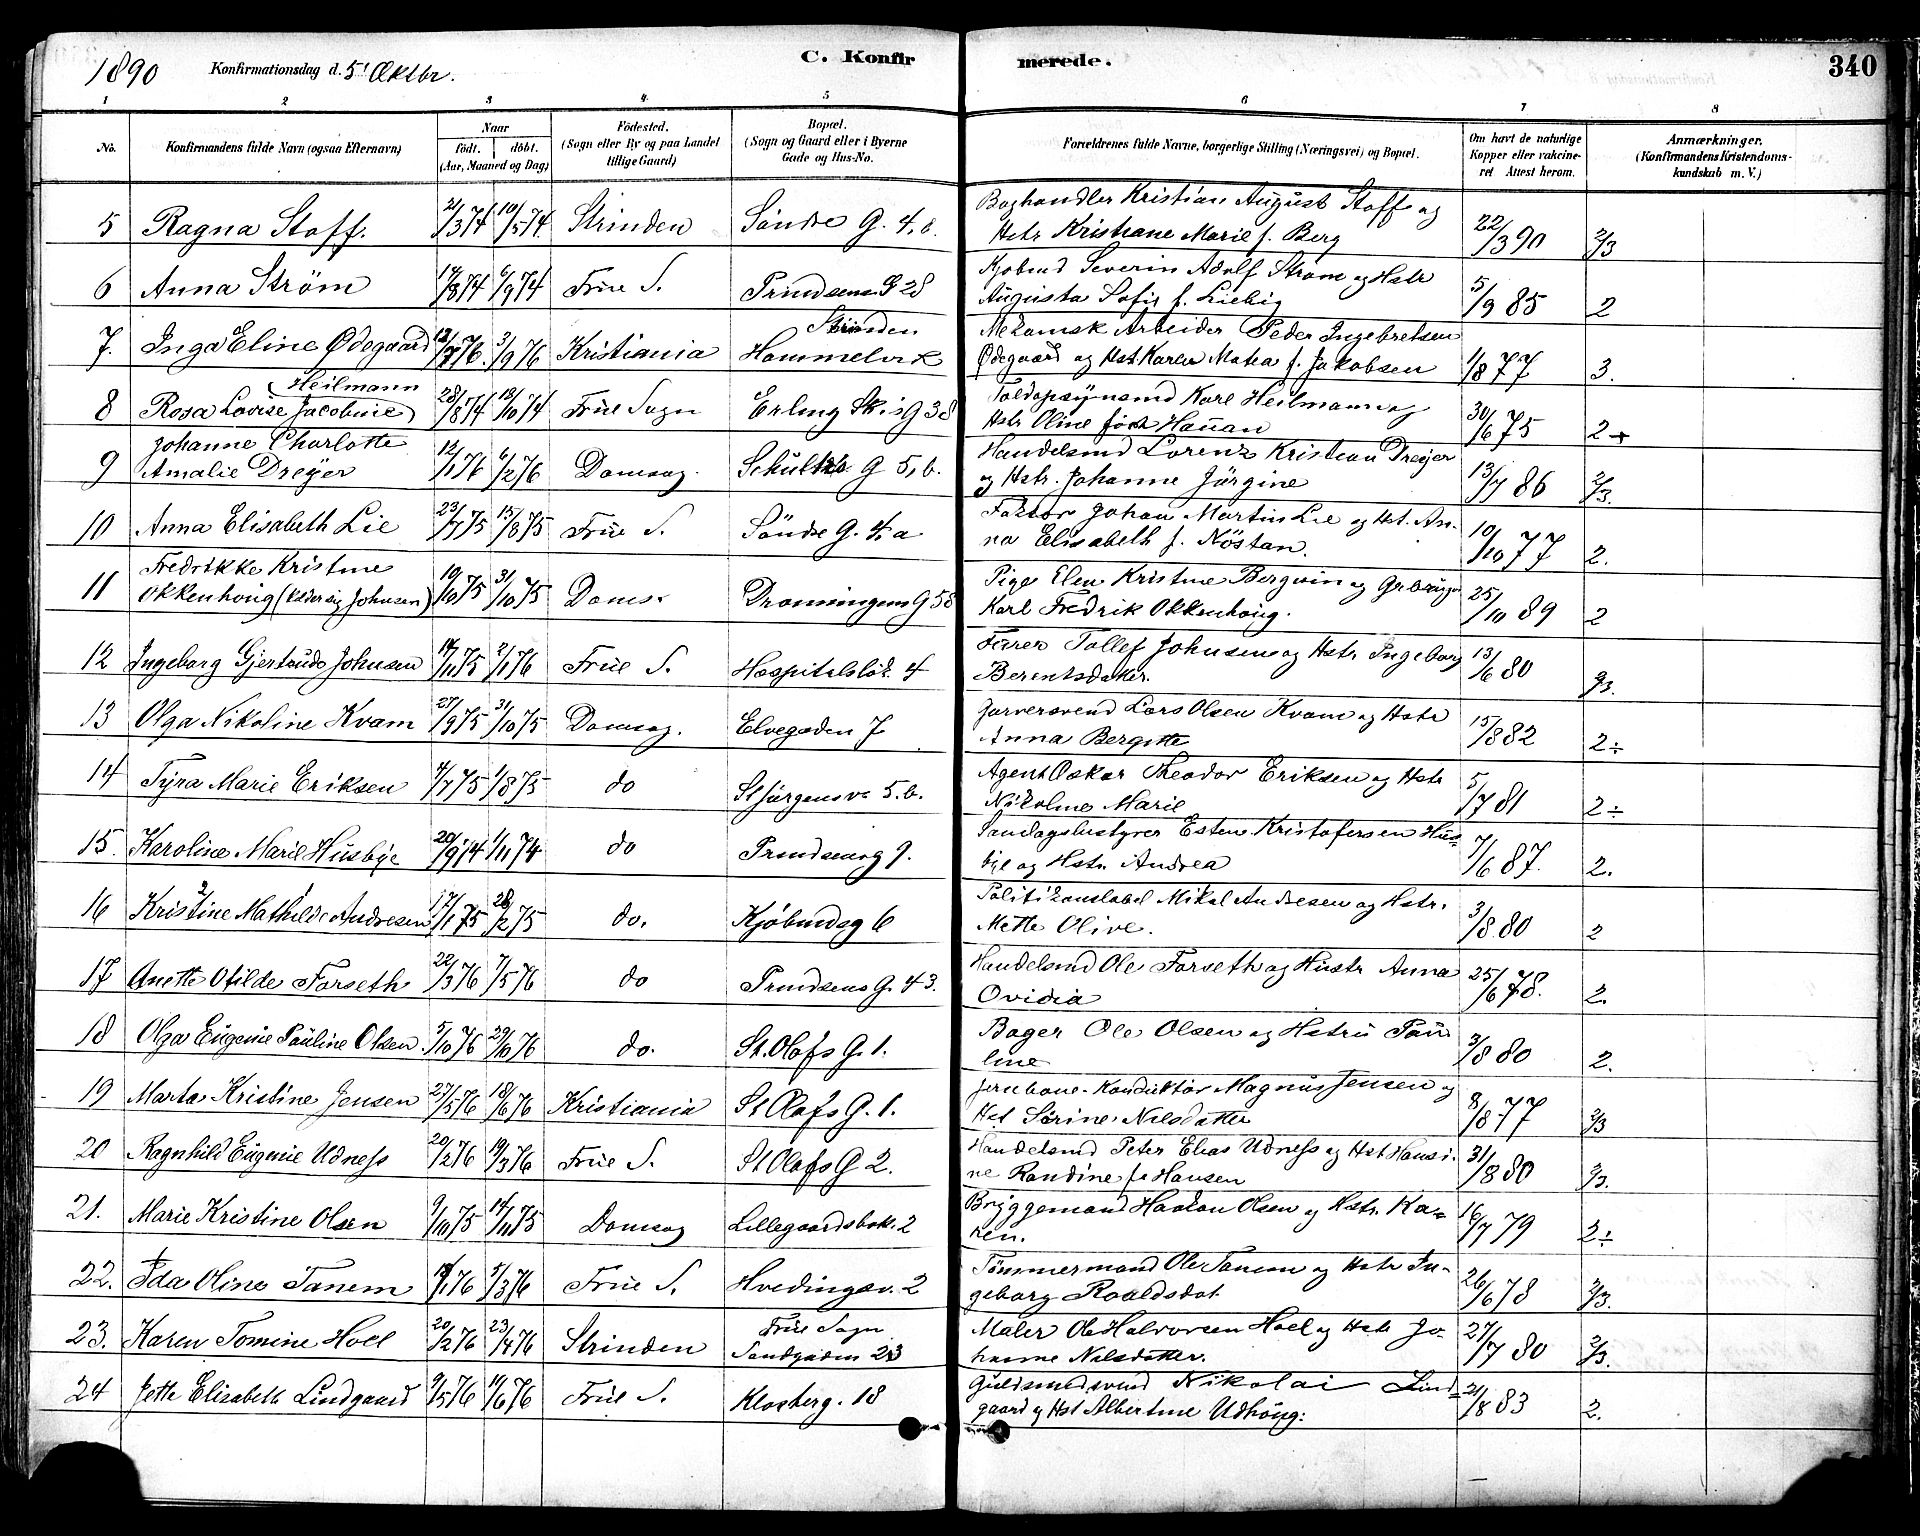 1890 Konfirmationsdag d. 5t Oktbr.
C. Konfir
merede.
340
1 2 3 4 5 6 7 8
No.
Konfirmandens fulde Navn (ogsaa Efternavn)
Naar
født. døbt.
(Aar, Maaned og Dag)
Fødested.
(Sogn eller By og paa Landet
tillige Gaard)
Bopæl.
(Sogn og Gaard eller i Byerne
Gade og Hus-No.
Forældrenes fulde Navne, borgerlige Stilling (Næringsvei) og Bopæl.
Om havt de naturlige
Kopper eller vakcine-
ret Attest herom.
Anmærkninger.
(Konfirmandens Kristendoms-
kundskab m. V.)
5 Ragna Stoff. 21/3 74 10/5 74 Strinden Søndre G. 4, b.
Boghandler Kristian August Stoff og
Hstr Kristiane Marie f. Berg 22/3 90 2/3
6 Anna Strøm 17/8 74 6/9 74 Frue S. Prindsens G 28
Kjøbmd Severin Adolf Strøm og Hstr
Augusta Sofie f. Liebig 5/9 85 2
7. Inga Eline Ødegaard 12/7 76. 3/9 76 Kristiania Strinden
Hommelvik
Mekanisk Arbeider Peder Ingebretsen
Ødegaard og Hst. Karen Matea f. Jakobsen 11/8 77 3.
Heilmann
8 Rosa Lovise Jacobine 28/8 74 18/10 74 Frue Sogn Erling Skis G 38
Toldopsynsmd Karl Heilmann og
Hstr Oline født Hauan 30/6 75 2+
Johanne Charlotte
9 Amalie Dreyer 12/1 76 6/2 76 Domsog. Schultz G 5, b.
Handelsmd Lorenz Kristian Dreyer
og Hstr. Johanne Jørgine 13/7 86 2/3.
10 Anna Elisabeth Lie 23/7 75 15/8 75 Frue S. Søndre G. 4, a
Faktor Johan Martin Lie og Hst. An-
na Elisabeth f. Nöstan. 10/10 77 2.
Fredrikke Kristine
11 Okkenhoug (kalder sig Johnsen) 19/10 75 31/10 75 Doms. Dronningens G 58
Pige Elen Kristine Bergvin og
Karl Fredrik Okkenhoug. 25/10 89 2
12 Ingeborg Gjertrude Johnsen 17/11 75 2/1 76 Frue S. Hospitalsløk. 4
Tollef Johnsen og Hstr Ingeborg
Berentsdatter. 13/6 80 2/3.
13 Olga Nikoline Kvam 27/9 75 31/10 75 Domsog. Elvegaden 7
Garversvend Lars Olsen Kvam og Hstr
Anna Bergitte 15/8 82 2÷
14 Tyra Marie Eriksen 4/7 75 1/8 75 do St Jørgensv. 5. b.
Agent Oskar Theodor Eriksen og Hstr
Nikoline Marie 5/7 81 2÷
15. Karoline Marie Husbye 20/9 74 1/11 74 do Prindsensg 9.
Esten Kristofersen Hus-
bye og Hstr. Andrea 7/6 87. 2.
16 Kristine Mathilde Andresen 17/1 75 28/2 75 do. Kjøbmdsg 6
Politikonstabel Mikal Andresen og Hstr.
Mette Olive. 3/8 80 2
17 Anette Otilde Forseth 22/3 76 7/5 76 do Prindsens G. 43.
Handelsmd Ole Forseth og Hustr Anna
Ovidia 25/6 78. 2.
18 Olga Eugenie Pauline Olsen. 5/10 76 29/10 76 do. St. Olafs G. 1.
Bager Ole Olsen og Hstru Pau-
line 3/8 80 2.
19 Marta Kristine Jensen 27/5 76 18/6 76 Kristiania St Olafs G. 1.
Jernbane-Konduktør Magnus Jensen og
Hst Sørine Nilsdatter 8/8 77 2/3
20 Ragnhild Eugenie Udness 20/2 76 19/3 76 Frue S. St Olafs G 2.
Handelsmd Peter Elias Udness og Hst Hansi-
ne Randine f. Hansen 31/8 80 2/3.
21. Marie Kristine Olsen 9/10 75 14/11 75 Domsog Lillegaardsbak. 2
Bryggemand Haldan Olsen og Hstr. Ka-
ren. 16/7 79 2÷
22. Ida Oline Tanem 18/1 76 5/3 76 Frue S. Hvedingsv. 2
Tømmermand Ole Tanem og Hstr In-
geborg Roaldsdat. 26/6 78 2/3.
23. Karen Tomine Hoel 20/2 76 23/4 76 Strinden Frue Sogn
Sandgaden 23
Maler Ole Halvorsen Hoel og Hstr Jo-
hanne Nilsdatter. 27/7 80 2/3.
24 Jette Elisabeth Lindgaard 9/5 76 11/6 76 Frue S. Klosterg. 18
Guldsmedsvend Nikolai Lind-
gaard og Hst Albertine Udhoug. 21/8 83 2.